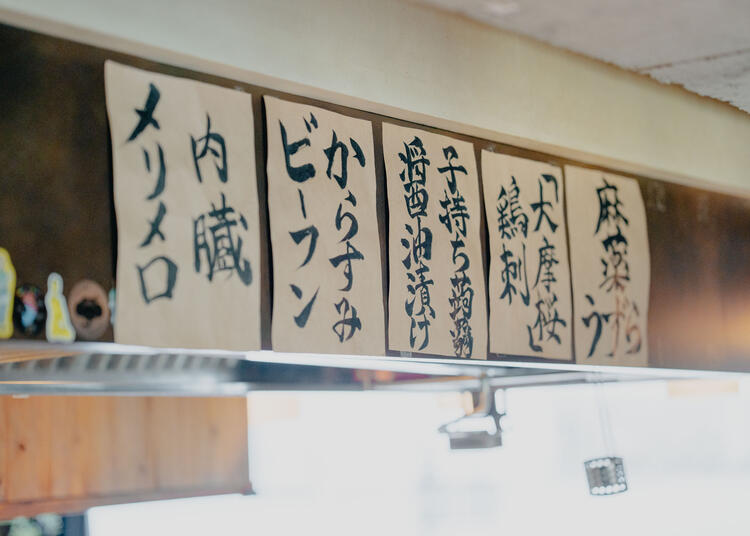 麻薬
うずら
「大摩桜」
鶏刺
子持ち蒟蒻
醤油漬け
からすみ
ビーフン
内臓
メリメロ